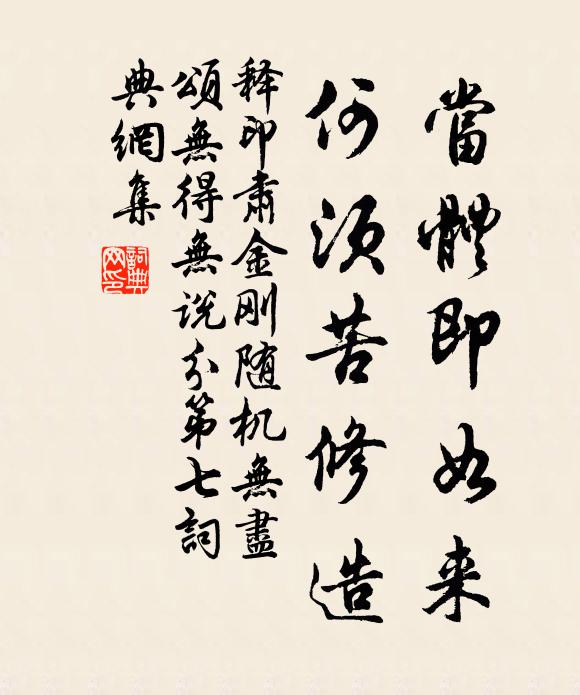 當體即如来
何須苦修造
释印肃金刚随机無盡
頌無得無说分第七詞
典網集
詞典
网印